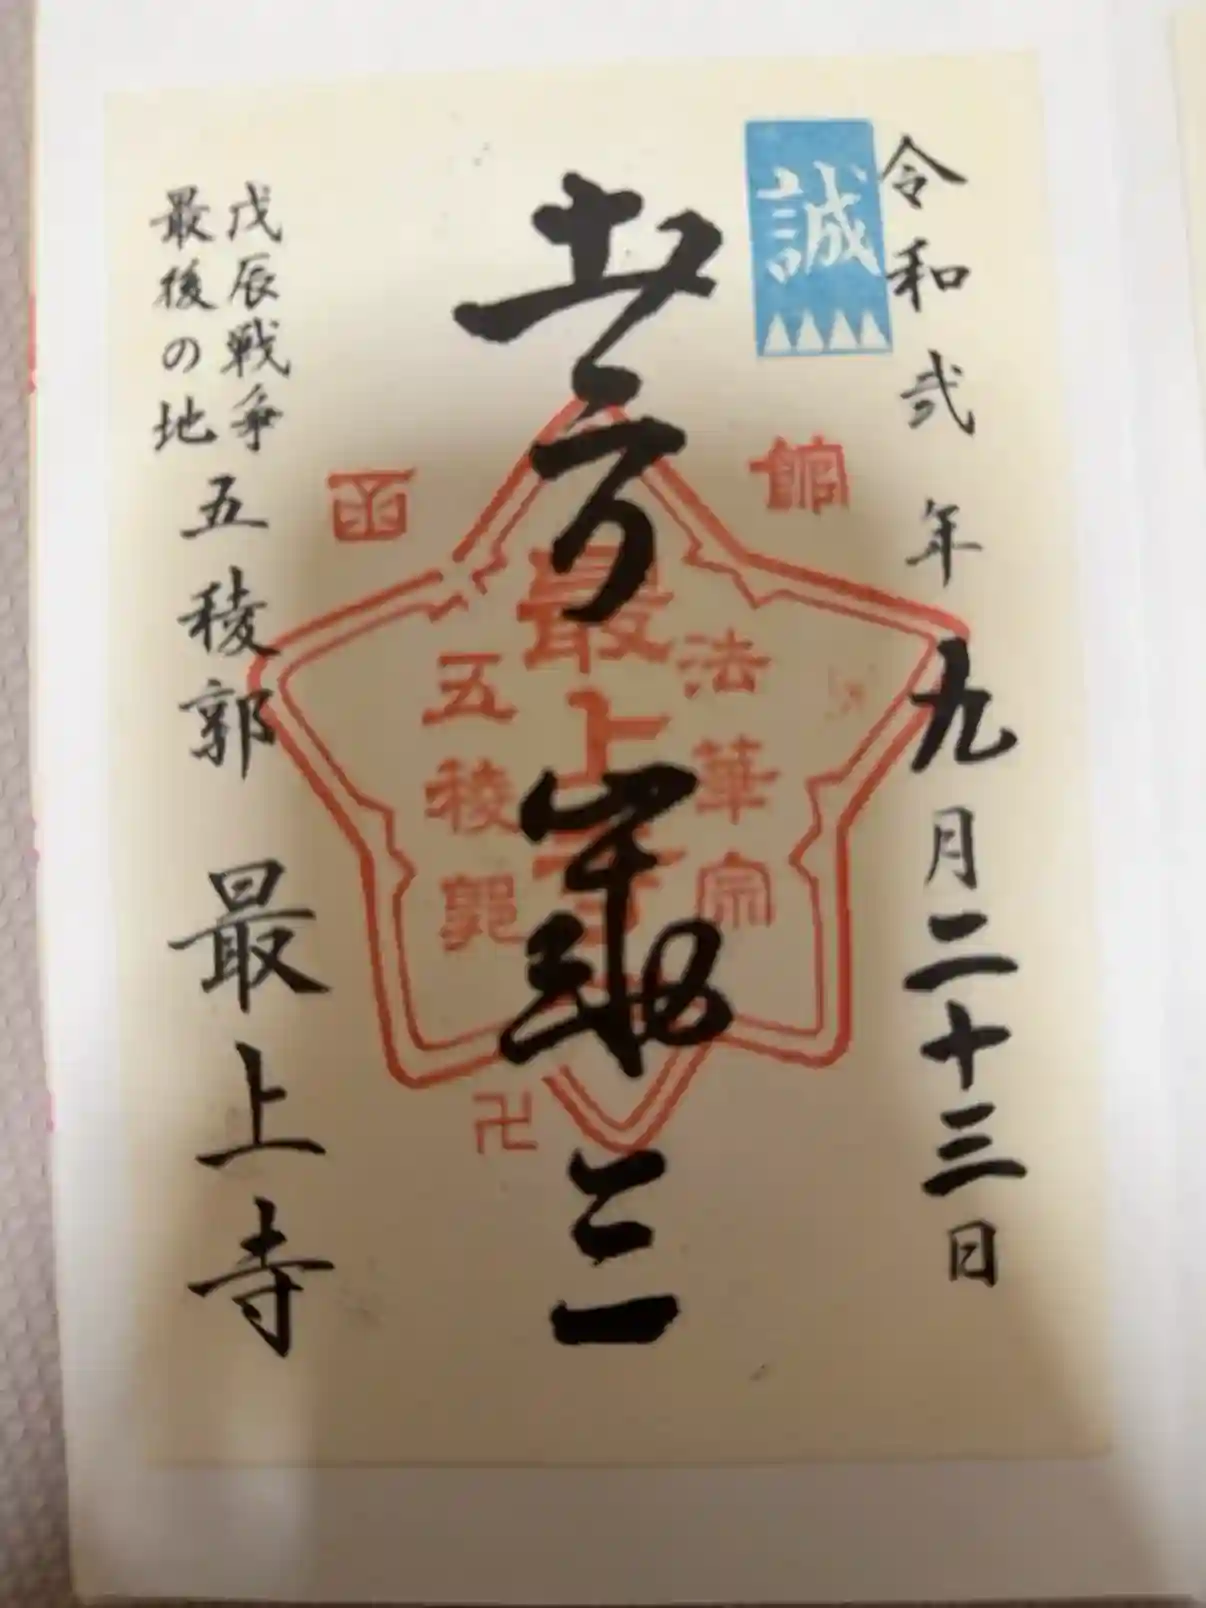 令和弐年九月二十三日
誠
土方歳三
函館
法華宗
最上寺
五稜郭
卍
戊辰戦争
最後の地
五稜郭 最上寺